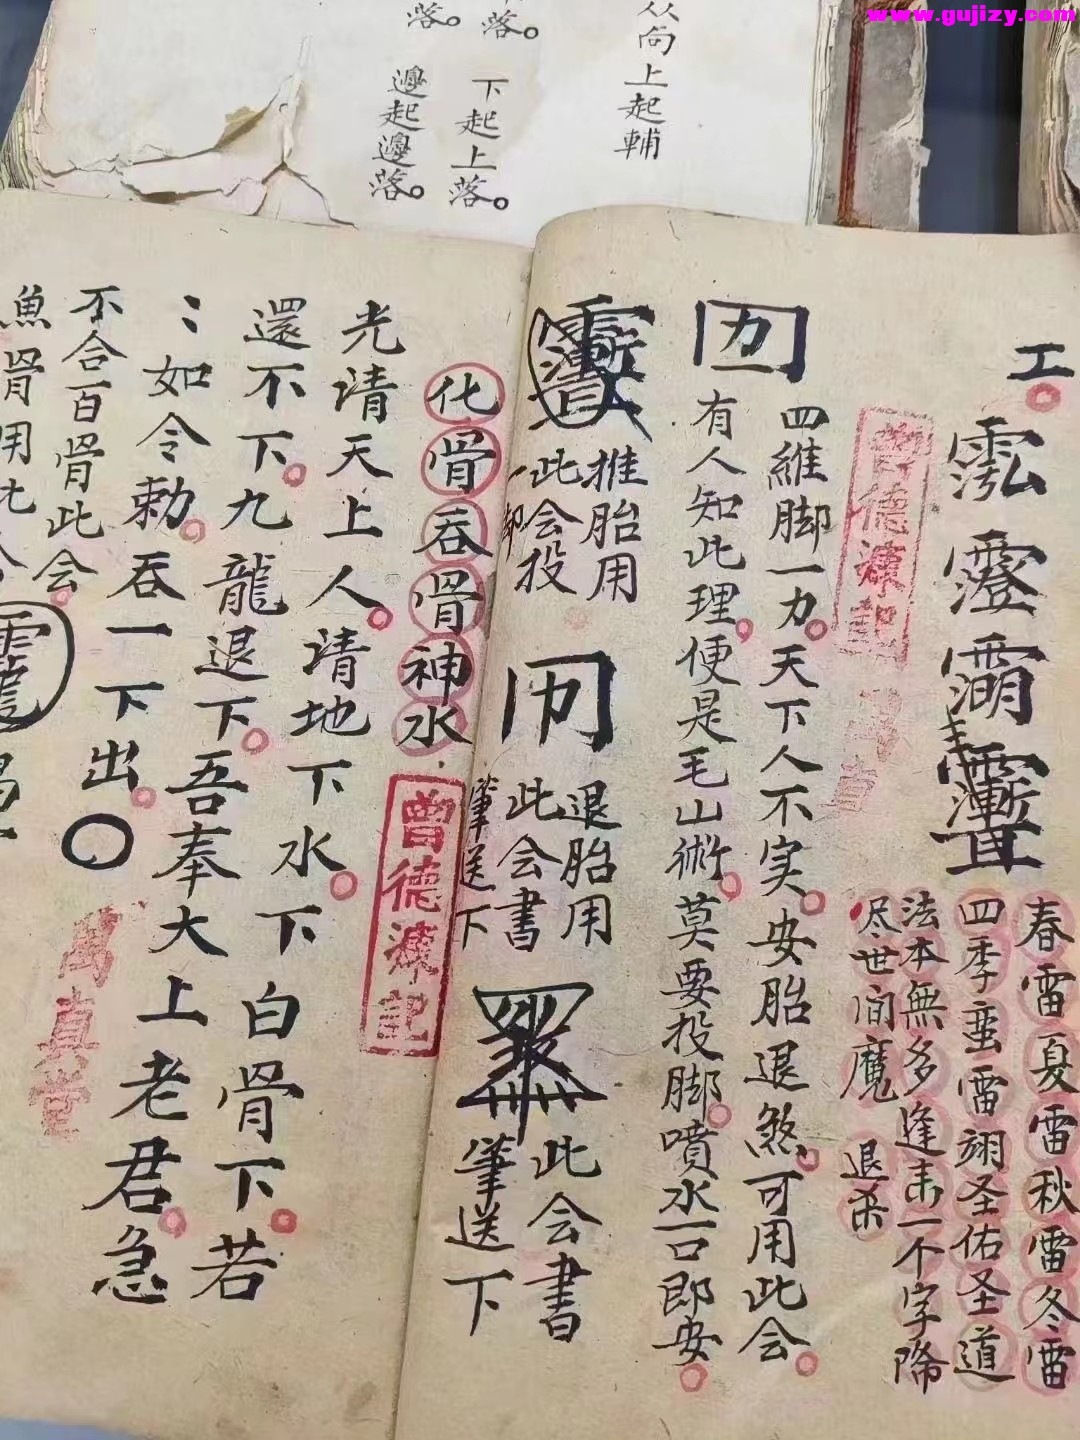 www.gujizy.com
从向上起輔
下起上落。
落。
邊起邊落。
落。
工。
春雷夏雷秋雷冬雷
四季蛮雷翊圣佑圣道
法本無多逢末一不字降
尽世间魔 退杀
曾德濂記
萬真堂
四維脚一力。天下人不実。安胎退煞。可用此会。
有人知此理。便是毛山術。莫要投脚。噴水一口即安。
推胎用
此会投
一卸
退胎用
此会書
筆送下
此会書
筆送下
化骨吞骨神水
曾德濂記
光请天上人。请地下水。下
還不下。九龍退下。吾奉大上老君急
白骨下。若
：如令勅。吞一下出。
不合百骨此会。
魚骨用九
萬真堂